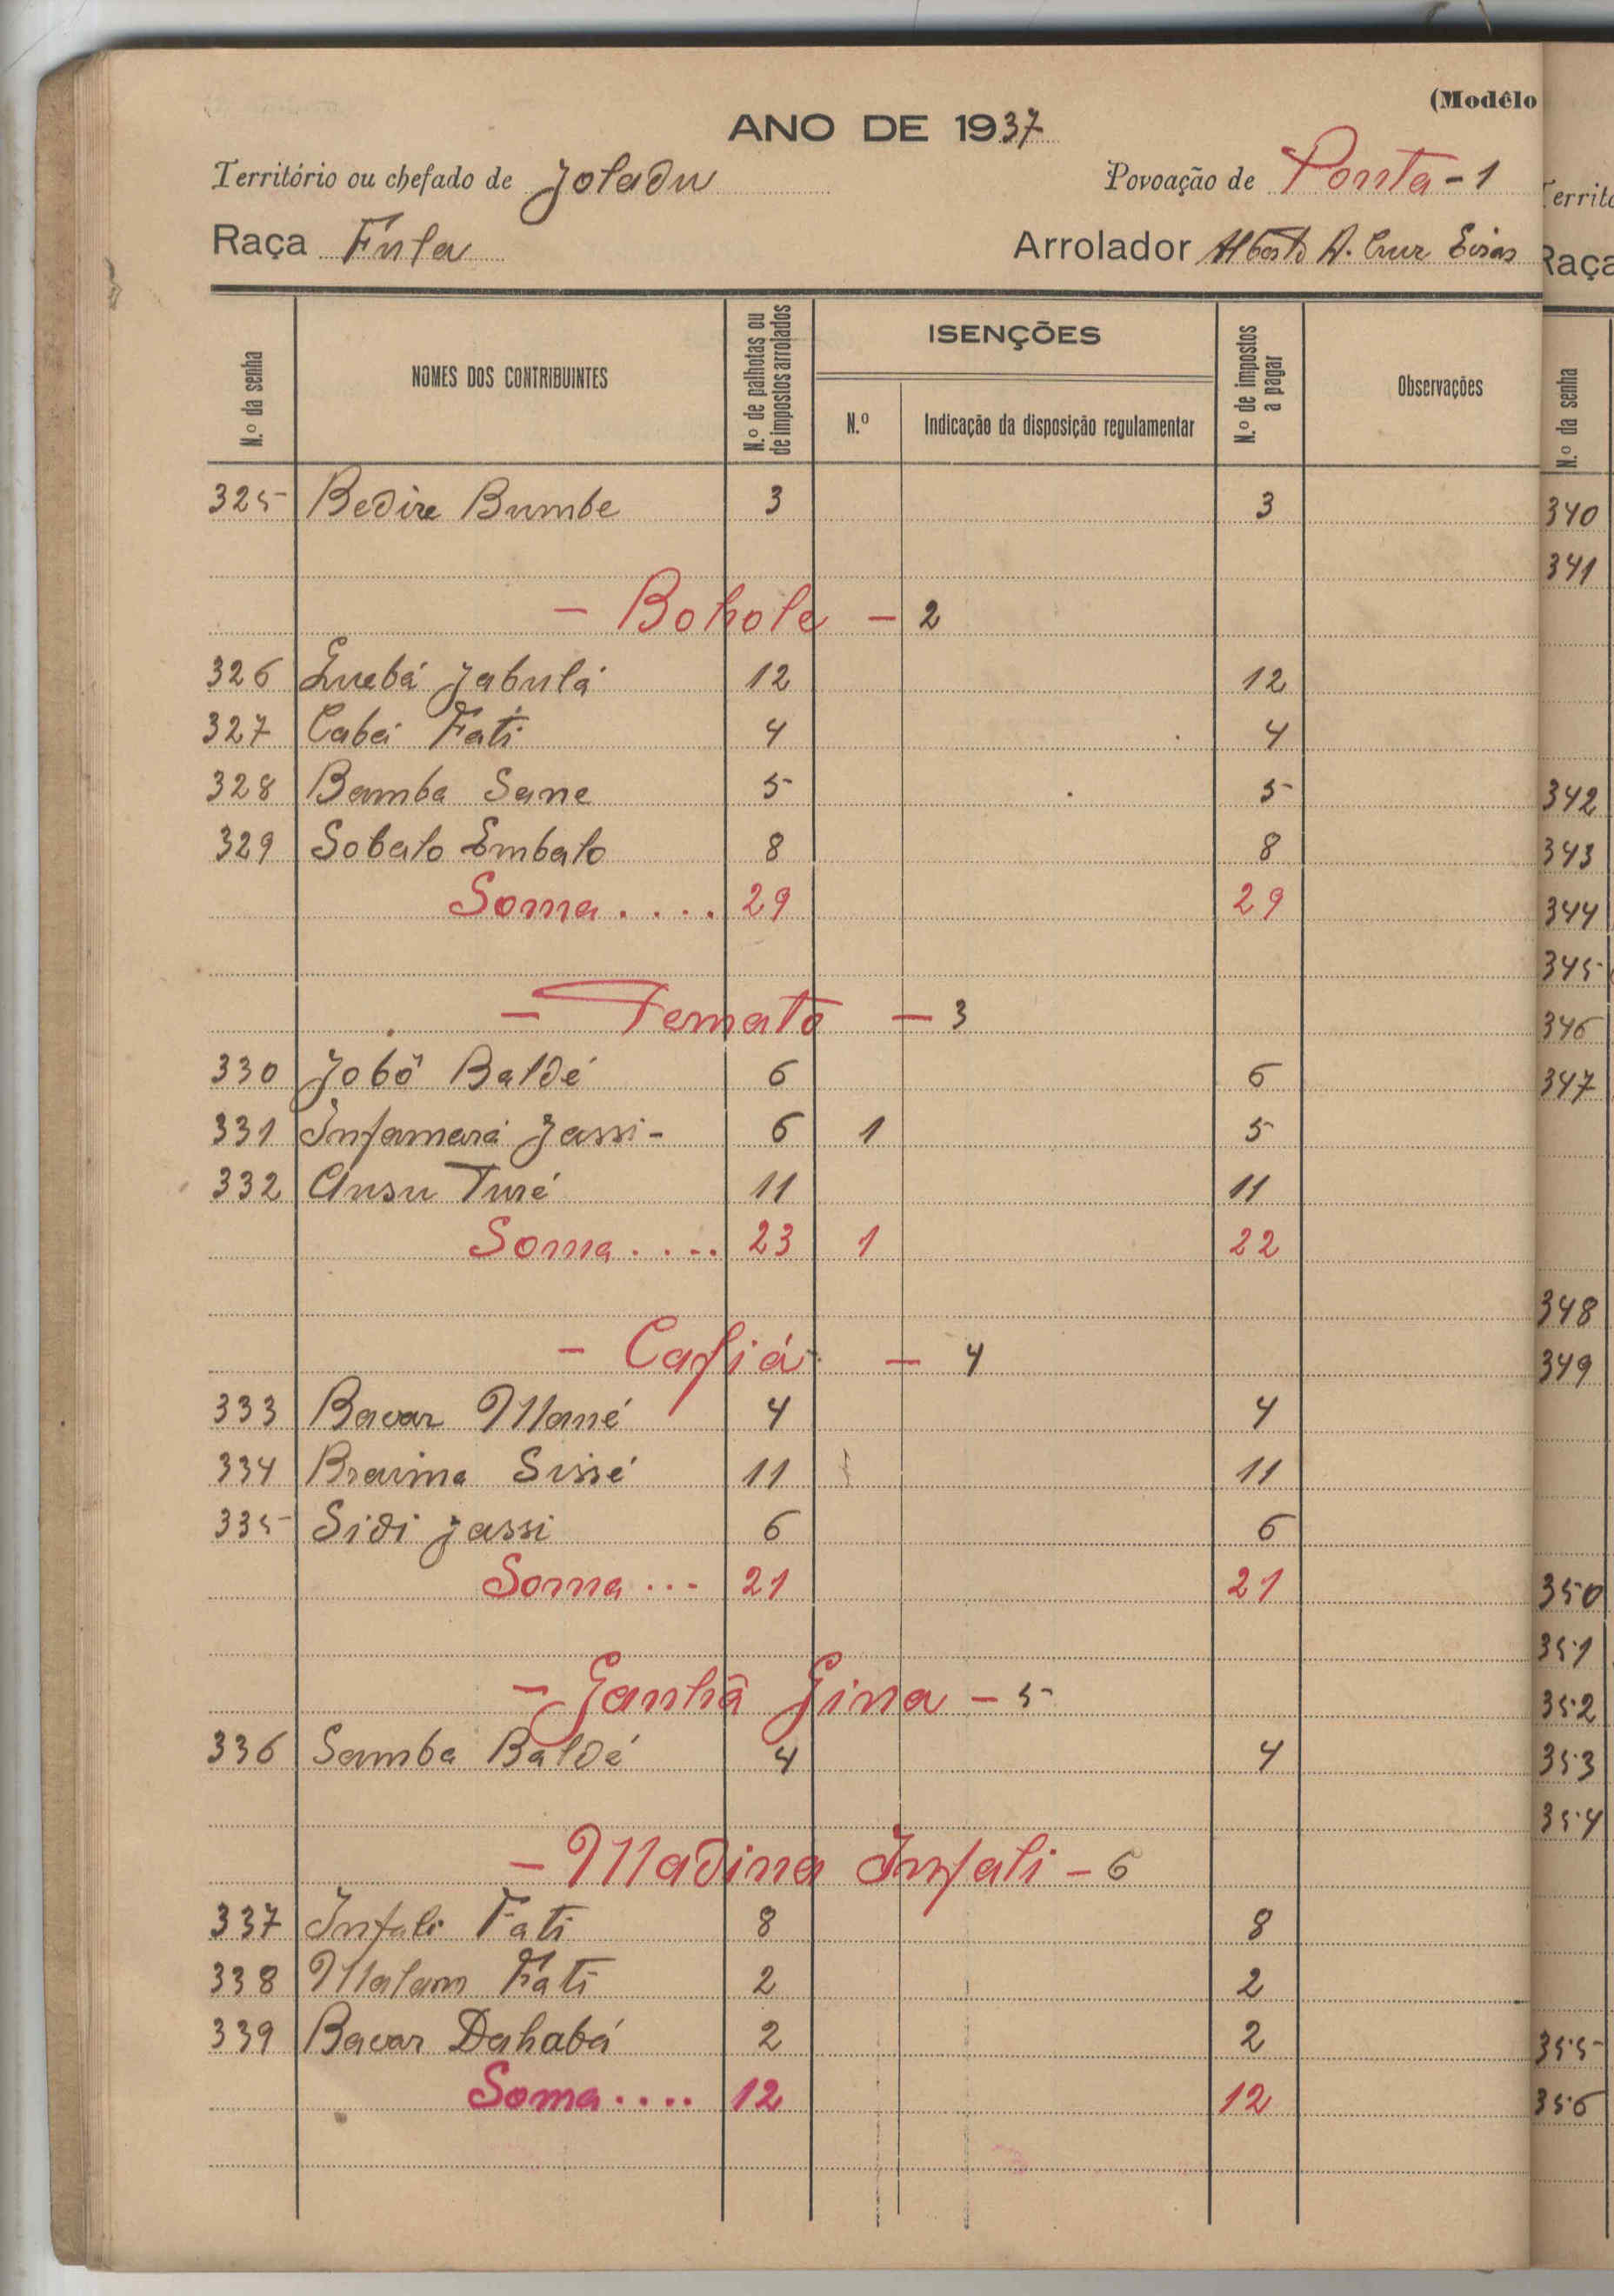 (Modêlo
ANO DE 1937
Território ou chefado de Joladu Povoação de Ponta - 1
Raça Fula Arrolador Alberto A. Cruz
N.º da senha NOMES DOS CONTRIBUINTES N.º de palhotas ou de impostos arrolados ISENÇÕES N.º Indicação da disposição regulamentar N.º de impostos a pagar Observações
325 Bedire Bumbe 3 3
- Bohole - 2
326 Quebá Jabulá 12 12
327 Cabá Fati 4 4
328 Bamba Sane 5 5
329 Sobalo Embalo 8 8
Soma .... 29 29
- Temato - 3
330 Jobô Baldé 6 6
331 Infamará Jassi - 6 1 5
332 Ansu Turé 11 11
Soma .... 23 1 22
- Cafiá - 4
333 Bacar Mané 4 4
334 Braima Sissé 11 11
335 Sidi Jassi 6 6
Soma ... 21 21
- Ganhâ Gina - 5
336 Samba Baldé 4 4
- Madina Infali - 6
337 Infali Fati 8 8
338 Malam Fati 2 2
339 Bacar Dahabá 2 2
Soma .... 12 12
Territó
Raça
N.º da senha
340
341
342
343
344
345
346
347
348
349
350
351
352
353
354
355
356